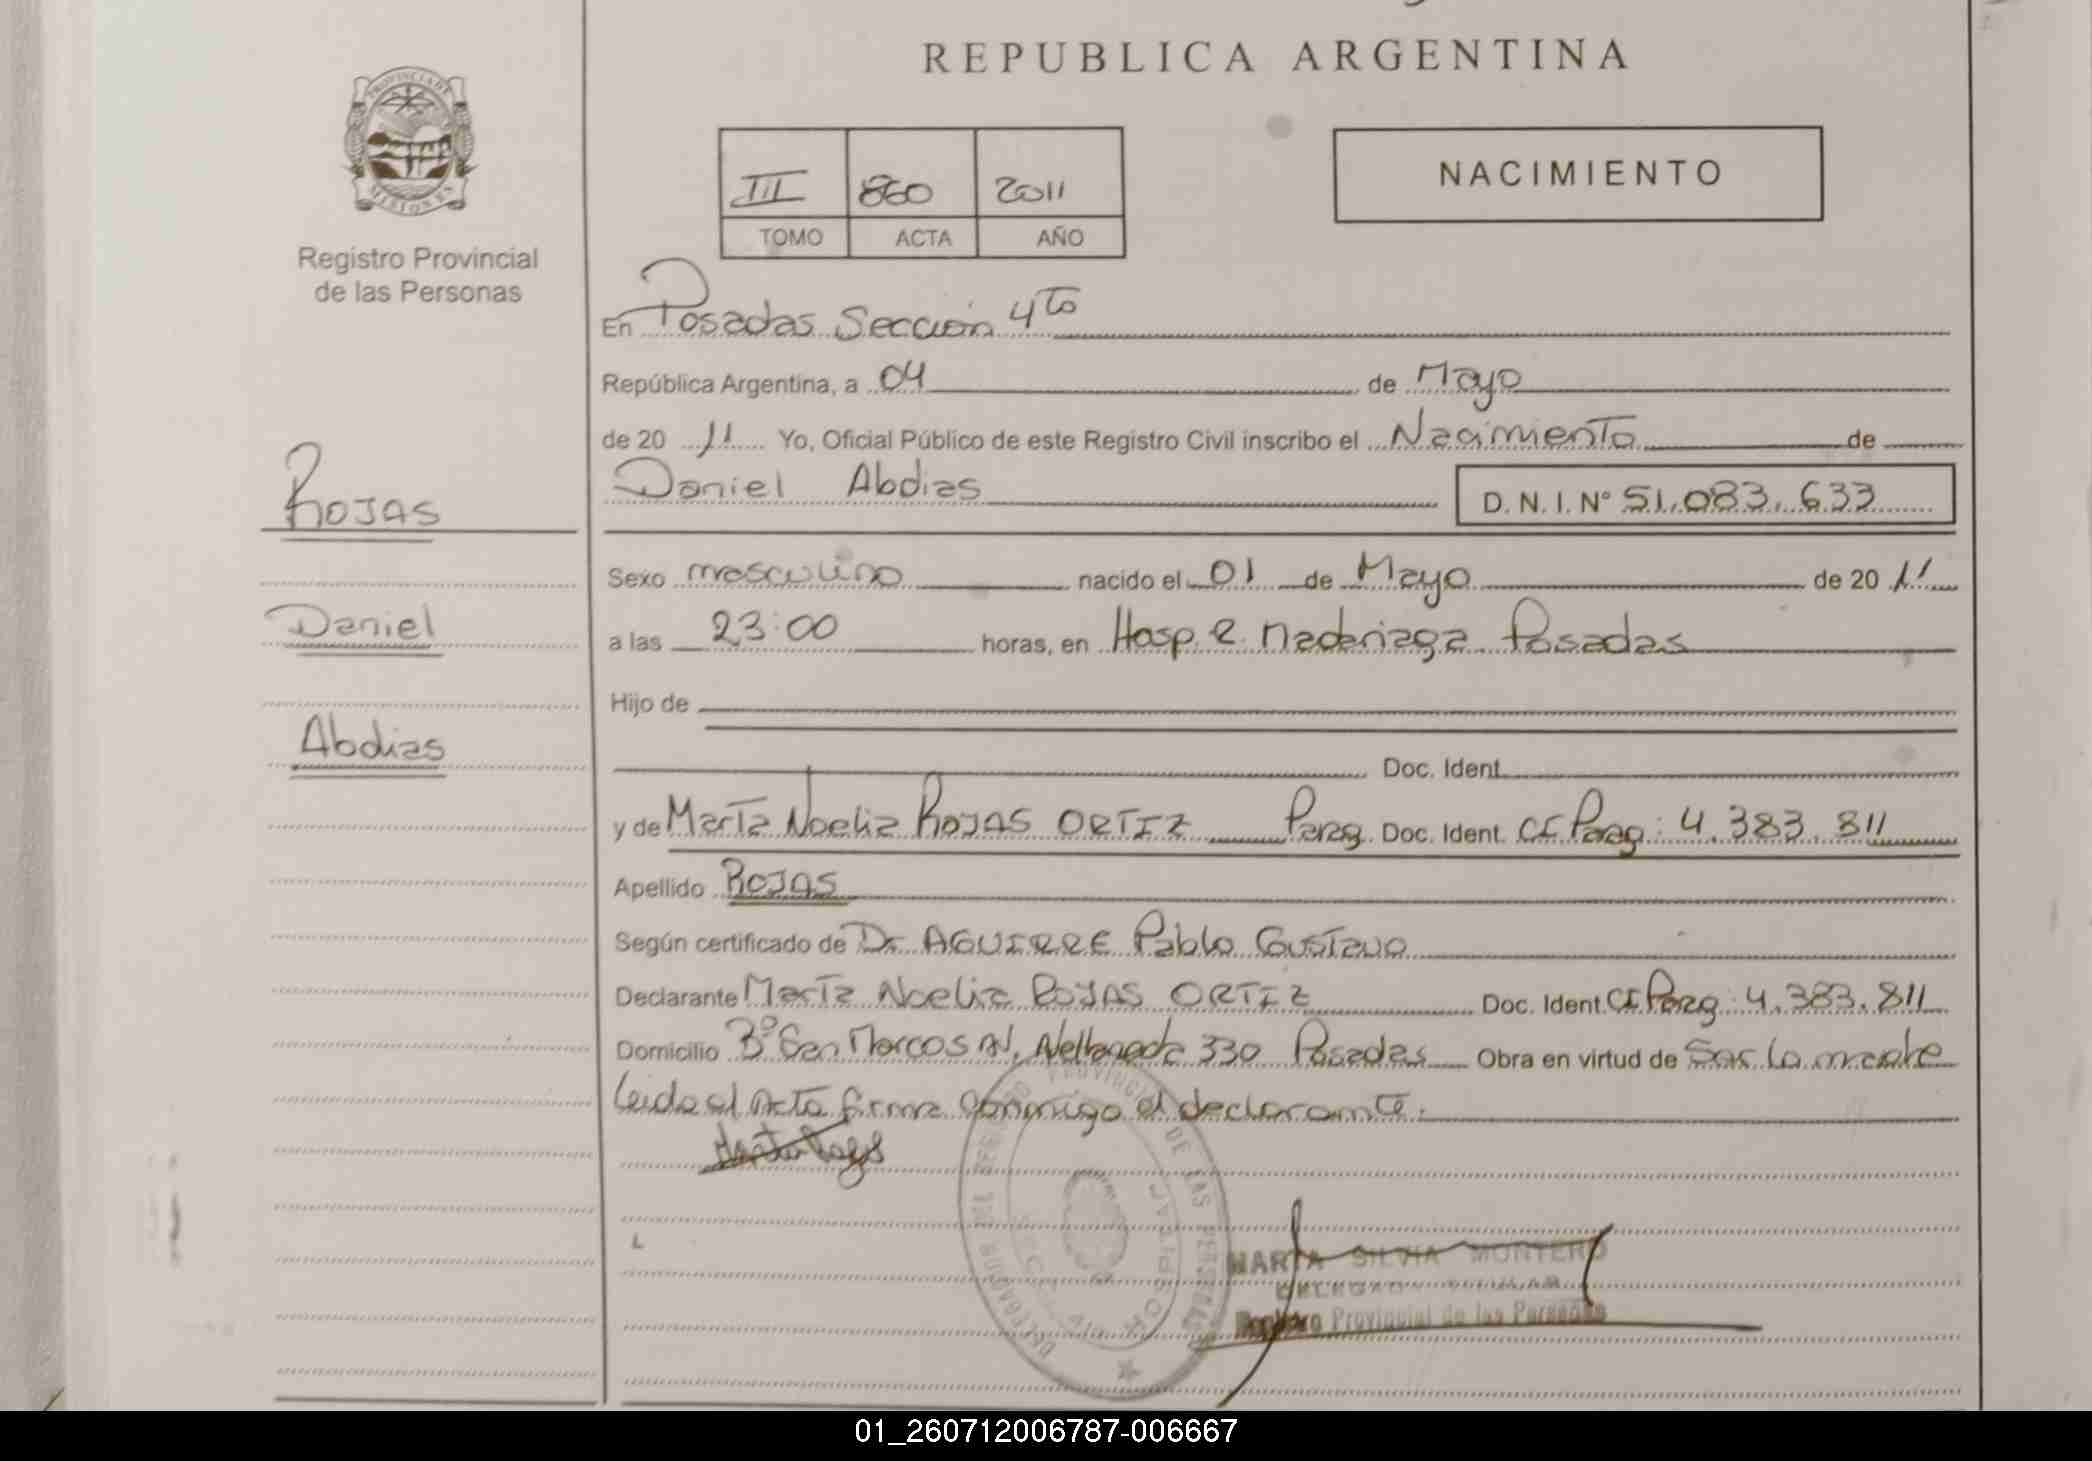 REPUBLICA ARGENTINA
PROVINCIA DE
MISIONES
Registro Provincial
de las Personas
III 860 2011
TOMO ACTA AÑO
NACIMIENTO
En Posadas Sección 4to
República Argentina, a 04 de Mayo
de 20 11 Yo, Oficial Público de este Registro Civil inscribo el Nacimiento de
Daniel Abdias D. N. I. Nº 51.083.633
ROJAS
Daniel
Abdias
Sexo masculino nacido el 01 de Mayo de 20 11
a las 23:00 horas, en Hosp. R. Madariaga Posadas
Hijo de
Doc. Ident.
y de Marta Noelia ROJAS ORTIZ Parag. Doc. Ident. CI Parag: 4.383.811
Apellido ROJAS
Según certificado de Dr. AGUIRRE Pablo Gustavo
Declarante Marta Noelia ROJAS ORTIZ Doc. Ident. CI Parag: 4.383.811
Domicilio Bº San Marcos Av. 330 Posadas Obra en virtud de Ser la madre
Leida el Acta firma conmigo el declarante.
MARTA SILVIA MONTERO
Registro Provincial de las Personas
01_260712006787-006667